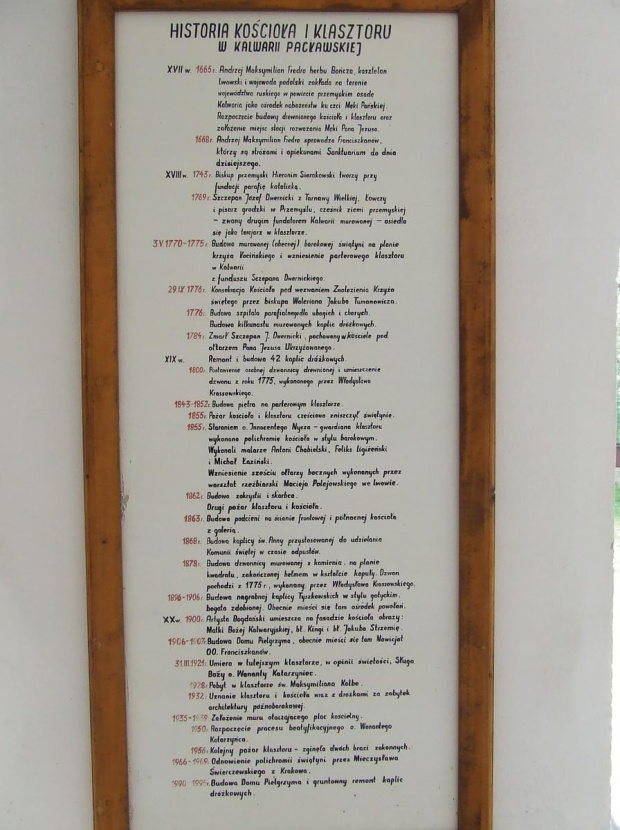 HISTORIA KOŚCIOŁA I KLASZTORU
W KALWARII PACŁAWSKIEJ
XVII w. 1665 r. Andrzej Maksymilian Fredro herbu Bończa, kasztelan
lwowski i wojewoda podolski zakłada na terenie
województwa ruskiego w powiecie przemyskim osadę
Kalwaria jako ośrodek nabożeństw ku czci Męki Pańskiej.
Rozpoczęcie budowy drewnianego kościoła i klasztoru oraz
założenie miejsc stacji rozważania Męki Pana Jezusa.
1668 r. Andrzej Maksymilian Fredro sprowadza Franciszkanów,
którzy są stróżami i opiekunami Sanktuarium do dnia
dzisiejszego.
XVIII w. 1743 r. Biskup przemyski Hieronim Sierakowski tworzy przy
fundacji parafię katolicką.
1769 r. Szczepan Józef Dwernicki z Tarnawy Wielkiej, Łowczy
i pisarz grodzki w Przemyślu, cześnik ziemi przemyskiej
- zwany drugim fundatorem Kalwarii murowanej - osiedla
się jako tercjarz w klasztorze.
3.V.1770-1775 r. Budowa murowanej (obecnej) barokowej świątyni na planie
krzyża łacińskiego i wzniesienie parterowego klasztoru
w Kalwarii
z funduszu Szczepana Dwernickiego.
29.IX 1776 r. Konsekracja Kościoła pod wezwaniem Znalezienia Krzyża
świętego przez biskupa Waleriana Jakuba Tumanowicza.
1776 r. Budowa szpitala parafialnego dla ubogich i chorych.
Budowa kilkunastu murowanych kaplic dróżkowych.
1784 r. Zmarł Szczepan J. Dwernicki, pochowany w kościele pod
ołtarzem Pana Jezusa Ukrzyżowanego.
XIX w. Remont i budowa 42 kaplic dróżkowych.
1800 r. Postawienie osobnej dzwonnicy drewnianej i umieszczenie
dzwonu z roku 1775, wykonanego przez Władysława
Krassowskiego.
1843-1852 r. Budowa piętra na parterowym klasztorze.
1855 r. Pożar kościoła i klasztoru częściowo zniszczył świątynię.
1855 r. Staraniem o. Innocentego Nycza - gwardiana klasztoru
wykonano polichromię kościoła w stylu barokowym.
Wykonali malarze Antoni Chabielski, Feliks Ligizeński
i Michał Łaziński.
Wzniesienie sześciu ołtarzy bocznych wykonanych przez
warsztat rzeźbiarski Macieja Polejowskiego we Lwowie.
1862 r. Budowa zakrystii i skarbca.
Drugi pożar klasztoru i kościoła.
1863 r. Budowa podcieni na ścianie frontowej i północnej kościoła
z galerią.
1868 r. Budowa kaplicy św. Anny przystosowanej do udzielania
Komunii świętej w czasie odpustów.
1878 r. Budowa dzwonnicy murowanej z kamienia, na planie
kwadratu, zakończonej hełmem w kształcie kopuły. Dzwon
pochodzi z 1775 r., wykonany przez Władysława Krassowskiego.
1896-1906 r. Budowa nagrobnej kaplicy Tyszkowskich w stylu gotyckim,
bogato zdobionej. Obecnie mieści się tam ośrodek powołań.
XX w. 1900 r. Artysta Bogdański umieszcza na fasadzie kościoła obrazy:
Matki Bożej Kalwaryjskiej, bł. Kingi i bł. Jakuba Strzemię.
1906-1907 r. Budowa Domu Pielgrzyma, obecnie mieści się tam Nowicjat
OO. Franciszkanów.
31.III.1921 r. Umiera w tutejszym klasztorze, w opinii świętości, Sługa
Boży o. Wenanty Katarzyniec.
1928 r. Pobyt w klasztorze św. Maksymiliana Kolbe.
1932 r. Uznanie klasztoru i kościoła wraz z dróżkami za zabytek
architektury późnobarokowej.
1935-1939 Założenie muru otaczającego plac kościelny.
1950 r. Rozpoczęcie procesu beatyfikacyjnego o. Wenantego
Katarzyńca.
1956 r. Kolejny pożar klasztoru - zginęło dwóch braci zakonnych.
1966-1969 Odnowienie polichromii świątyni przez Mieczysława
Świerczewskiego z Krakowa.
1990-1991 r. Budowa Domu Pielgrzyma i gruntowny remont kaplic
dróżkowych.